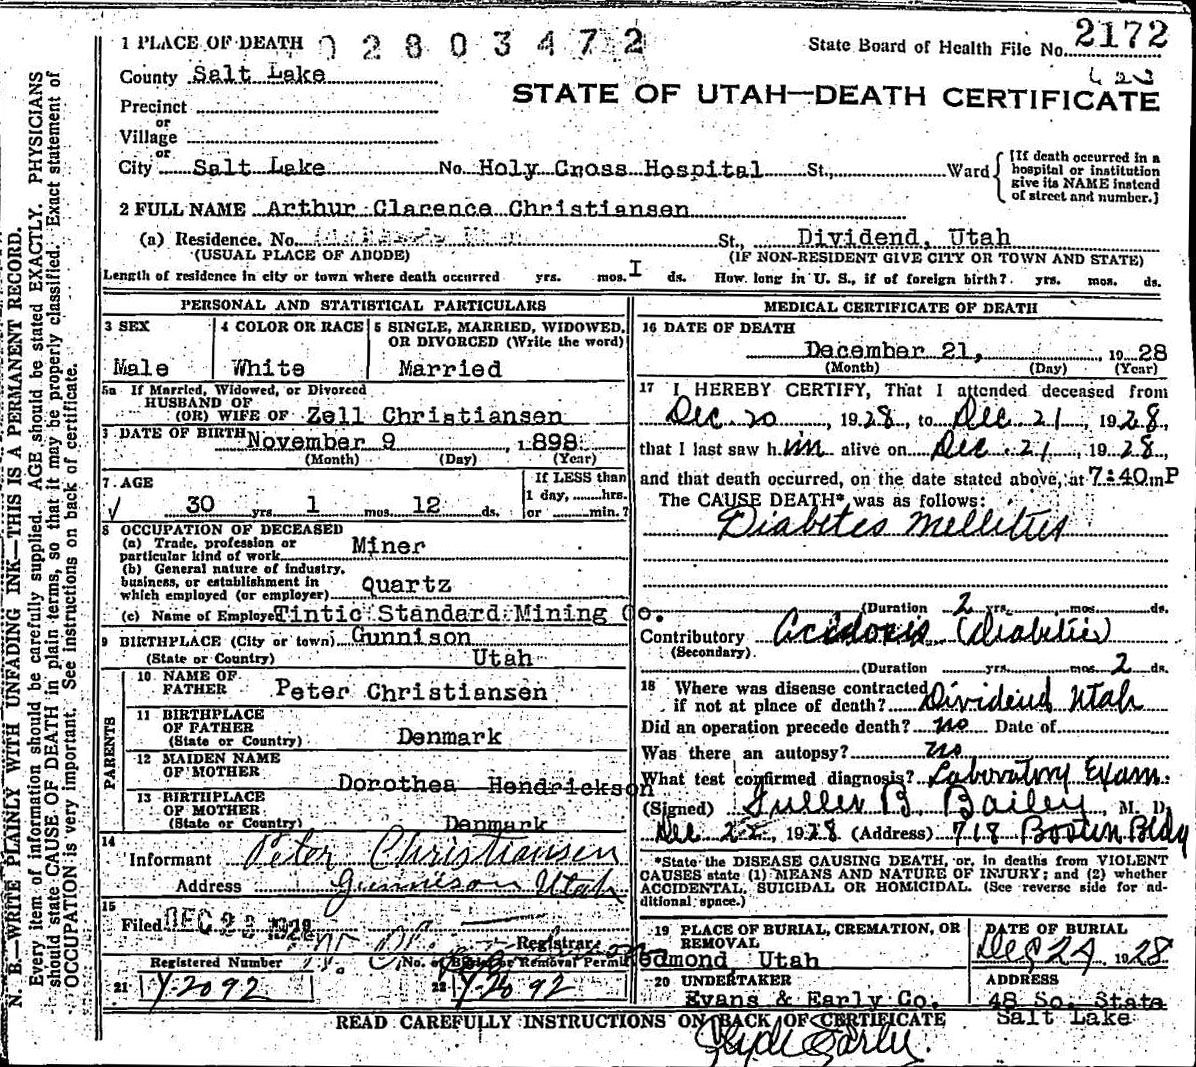 1 PLACE OF DEATH 02803472
State Board of Health File No. 2172
County Salt Lake
STATE OF UTAH—DEATH CERTIFICATE
Precinct
or
Village
or
City Salt Lake No. Holy Cross Hospital St., Ward {[If death occurred in a hospital or institution give its NAME instead of street and number.]
2 FULL NAME Arthur Clarence Christiansen
(a) Residence. No. St., Dividend, Utah
(USUAL PLACE OF ABODE) (IF NON-RESIDENT GIVE CITY OR TOWN AND STATE)
Length of residence in city or town where death occurred yrs. mos. I ds. How long in U. S., if of foreign birth? yrs. mos. ds.
PERSONAL AND STATISTICAL PARTICULARS
3 SEX 4 COLOR OR RACE 5 SINGLE, MARRIED, WIDOWED,
OR DIVORCED (Write the word)
Male White Married
5a If Married, Widowed, or Divorced
HUSBAND OF
(OR) WIFE OF Zell Christiansen
DATE OF BIRTH November 9 1898
(Month) (Day) (Year)
7 AGE If LESS than
1 day, hrs.
30 yrs. 1 mos. 12 ds. or min.?
8 OCCUPATION OF DECEASED
(a) Trade, profession or
particular kind of work Miner
(b) General nature of industry,
business, or establishment in
which employed (or employer) Quartz
(c) Name of Employer Tintic Standard Mining Co.
9 BIRTHPLACE (City or town) Gunnison
(State or Country) Utah
PARENTS
10 NAME OF
FATHER Peter Christiansen
11 BIRTHPLACE
OF FATHER
(State or Country) Denmark
12 MAIDEN NAME
OF MOTHER
Dorothea Hendrickson
13 BIRTHPLACE
OF MOTHER
(State or Country) Denmark
14
Informant Peter Christiansen
Address Gunnison Utah
15
Filed DEC 23 1928
Registrar
Registered Number No. of Burial or Removal Permit
21 Y-2092 22 Y-2092
MEDICAL CERTIFICATE OF DEATH
16 DATE OF DEATH
December 21, 1928
(Month) (Day) (Year)
17 I HEREBY CERTIFY, That I attended deceased from
Dec. 20, 1928, to Dec 21, 1928,
that I last saw him alive on Dec. 21, 1928,
and that death occurred, on the date stated above, at 7:40 m P
The CAUSE DEATH* was as follows:
Diabetes mellitus
(Duration 2 yrs. mos. ds.
Contributory Acidosis (Diabetic)
(Secondary)
(Duration yrs. mos. 2 ds.
18 Where was disease contracted
if not at place of death? Dividend Utah
Did an operation precede death? no Date of
Was there an autopsy? no
What test confirmed diagnosis? Laboratory Exam.
(Signed) Fuller B. Bailey, M. D.
Dec 22, 1928 (Address) 718 Boston Bldg
*State the DISEASE CAUSING DEATH, or, in deaths from VIOLENT
CAUSES state (1) MEANS AND NATURE OF INJURY; and (2) whether
ACCIDENTAL, SUICIDAL OR HOMICIDAL. (See reverse side for ad-
ditional space.)
19 PLACE OF BURIAL, CREMATION, OR
REMOVAL
DATE OF BURIAL
edmond Utah Dec 24 1928
20 UNDERTAKER ADDRESS
Evans & Early Co. 48 So. State
Salt Lake
READ CAREFULLY INSTRUCTIONS ON BACK OF CERTIFICATE
Clyde Early.
N. B.—WRITE PLAINLY WITH UNFADING INK—THIS IS A PERMANENT RECORD.
Every item of information should be carefully supplied. AGE should be stated EXACTLY. PHYSICIANS
should state CAUSE OF DEATH in plain terms, so that it may be properly classified. Exact statement of
OCCUPATION is very important. See instructions on back of certificate.